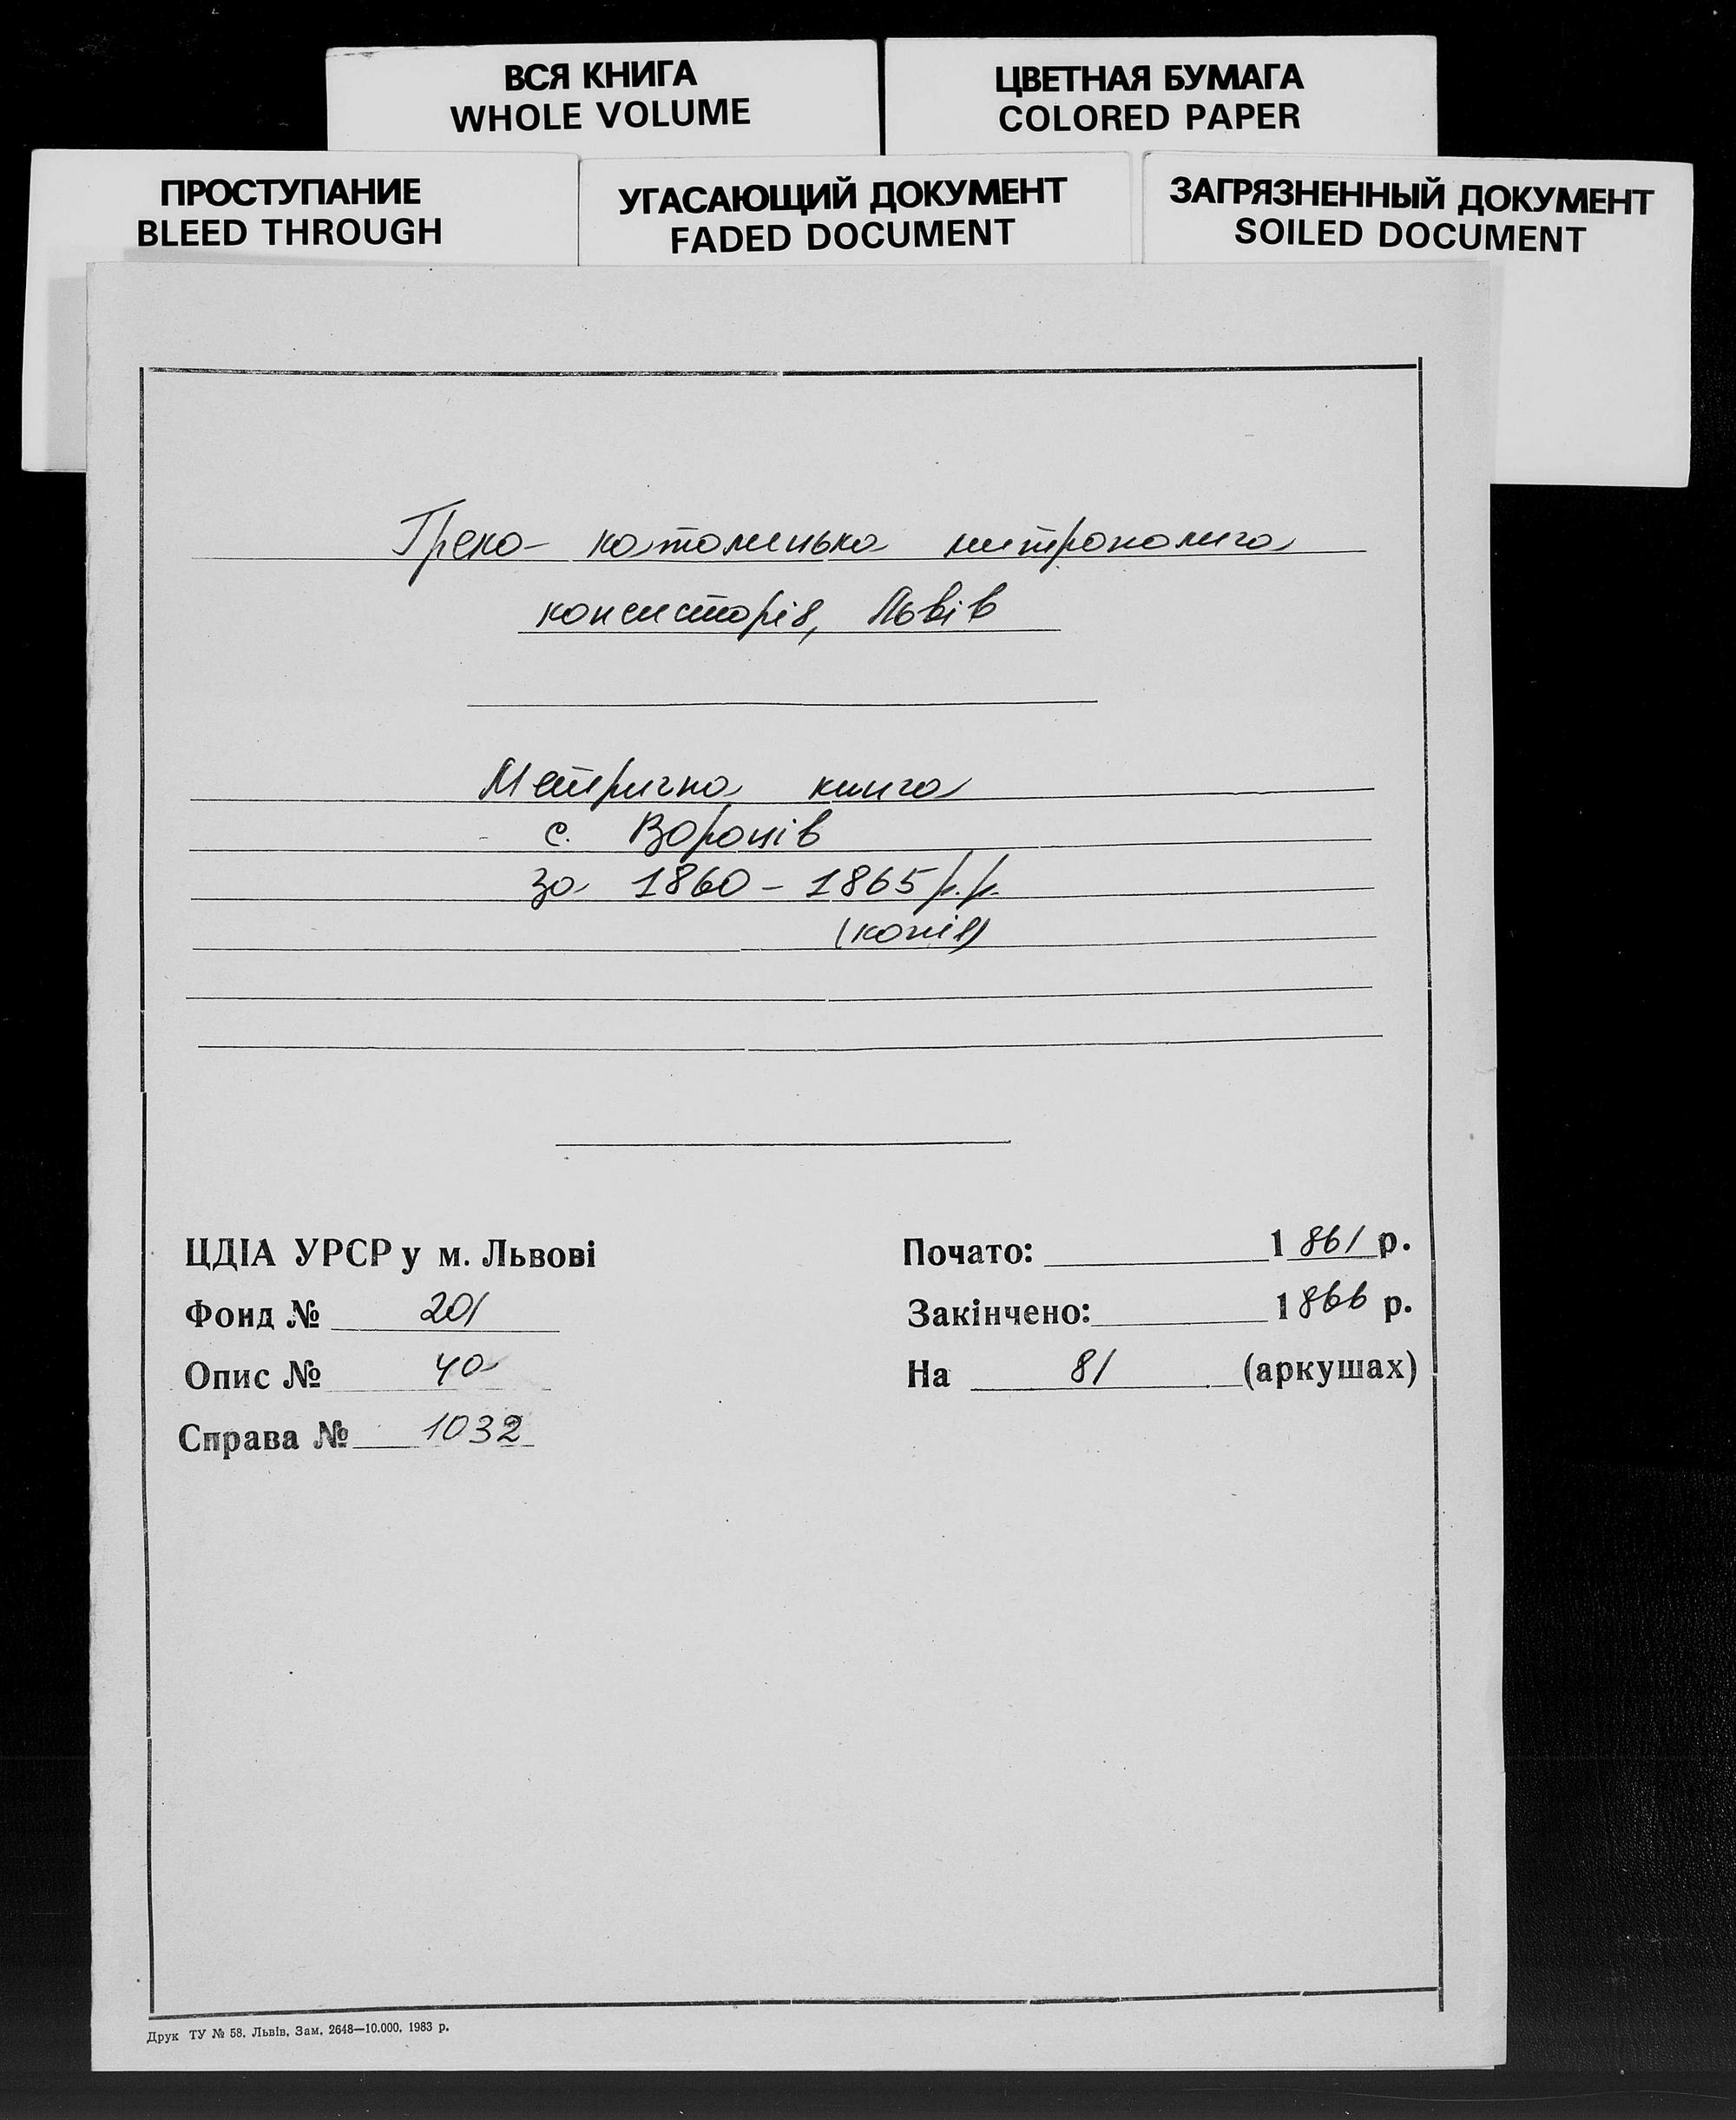 ВСЯ КНИГА
WHOLE VOLUME
ЦВЕТНАЯ БУМАГА
COLORED PAPER
ПРОСТУПАНИЕ
BLEED THROUGH
УГАСАЮЩИЙ ДОКУМЕНТ
FADED DOCUMENT
ЗАГРЯЗНЕННЫЙ ДОКУМЕНТ
SOILED DOCUMENT
Греко-католицька митрополича
консисторія, Львів
Метрична книга
с. Вороців
за 1860-1865 р.р.
(копія)
ЦДІА УРСР у м. Львові
Фонд № 201
Опис № 4а
Справа № 1032
Почато: 1861 р.
Закінчено: 1866 р.
На 81 (аркушах)
Друк ТУ № 58. Львів, Зам. 2648—10.000. 1983 р.